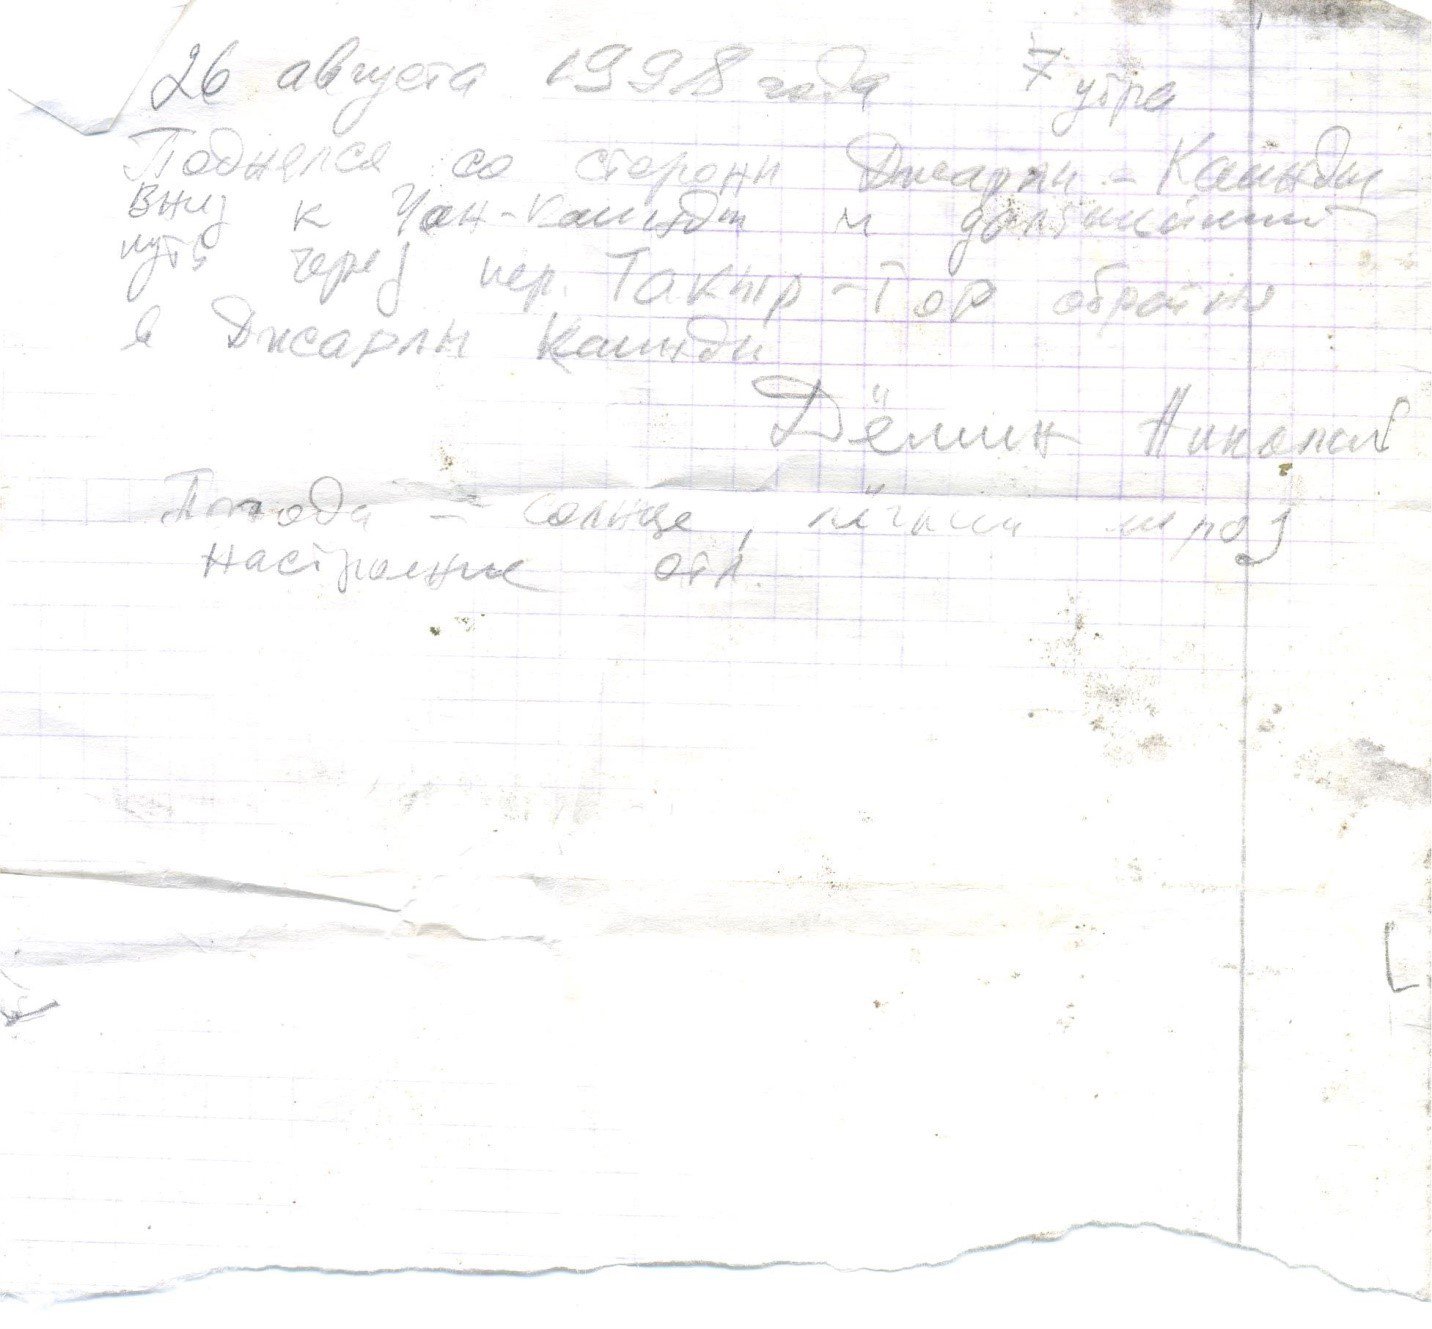 26 августа 1998 года 7 утра
Поднялся со стороны Джарлы-Каинды
вниз к Чон-Каинды и дальнейший
путь через пер. Такыр-Тор обратно
в Джарлы Каинды
Дёмин Николай
Погода - солнце, лёгкий мороз
Настроение отл.